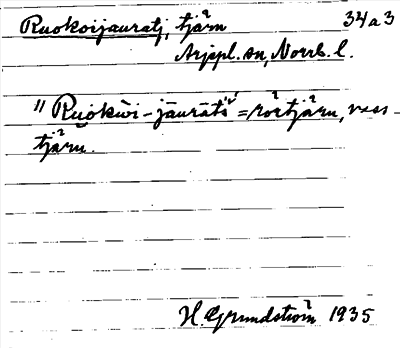 Ruokoijauratj, tjärn 34a3
Arjepl. sn, Norrb. l.
"Ruokωi-jāurātš" = rörtjärn, vass-
tjärn.
H. Grundström 1935